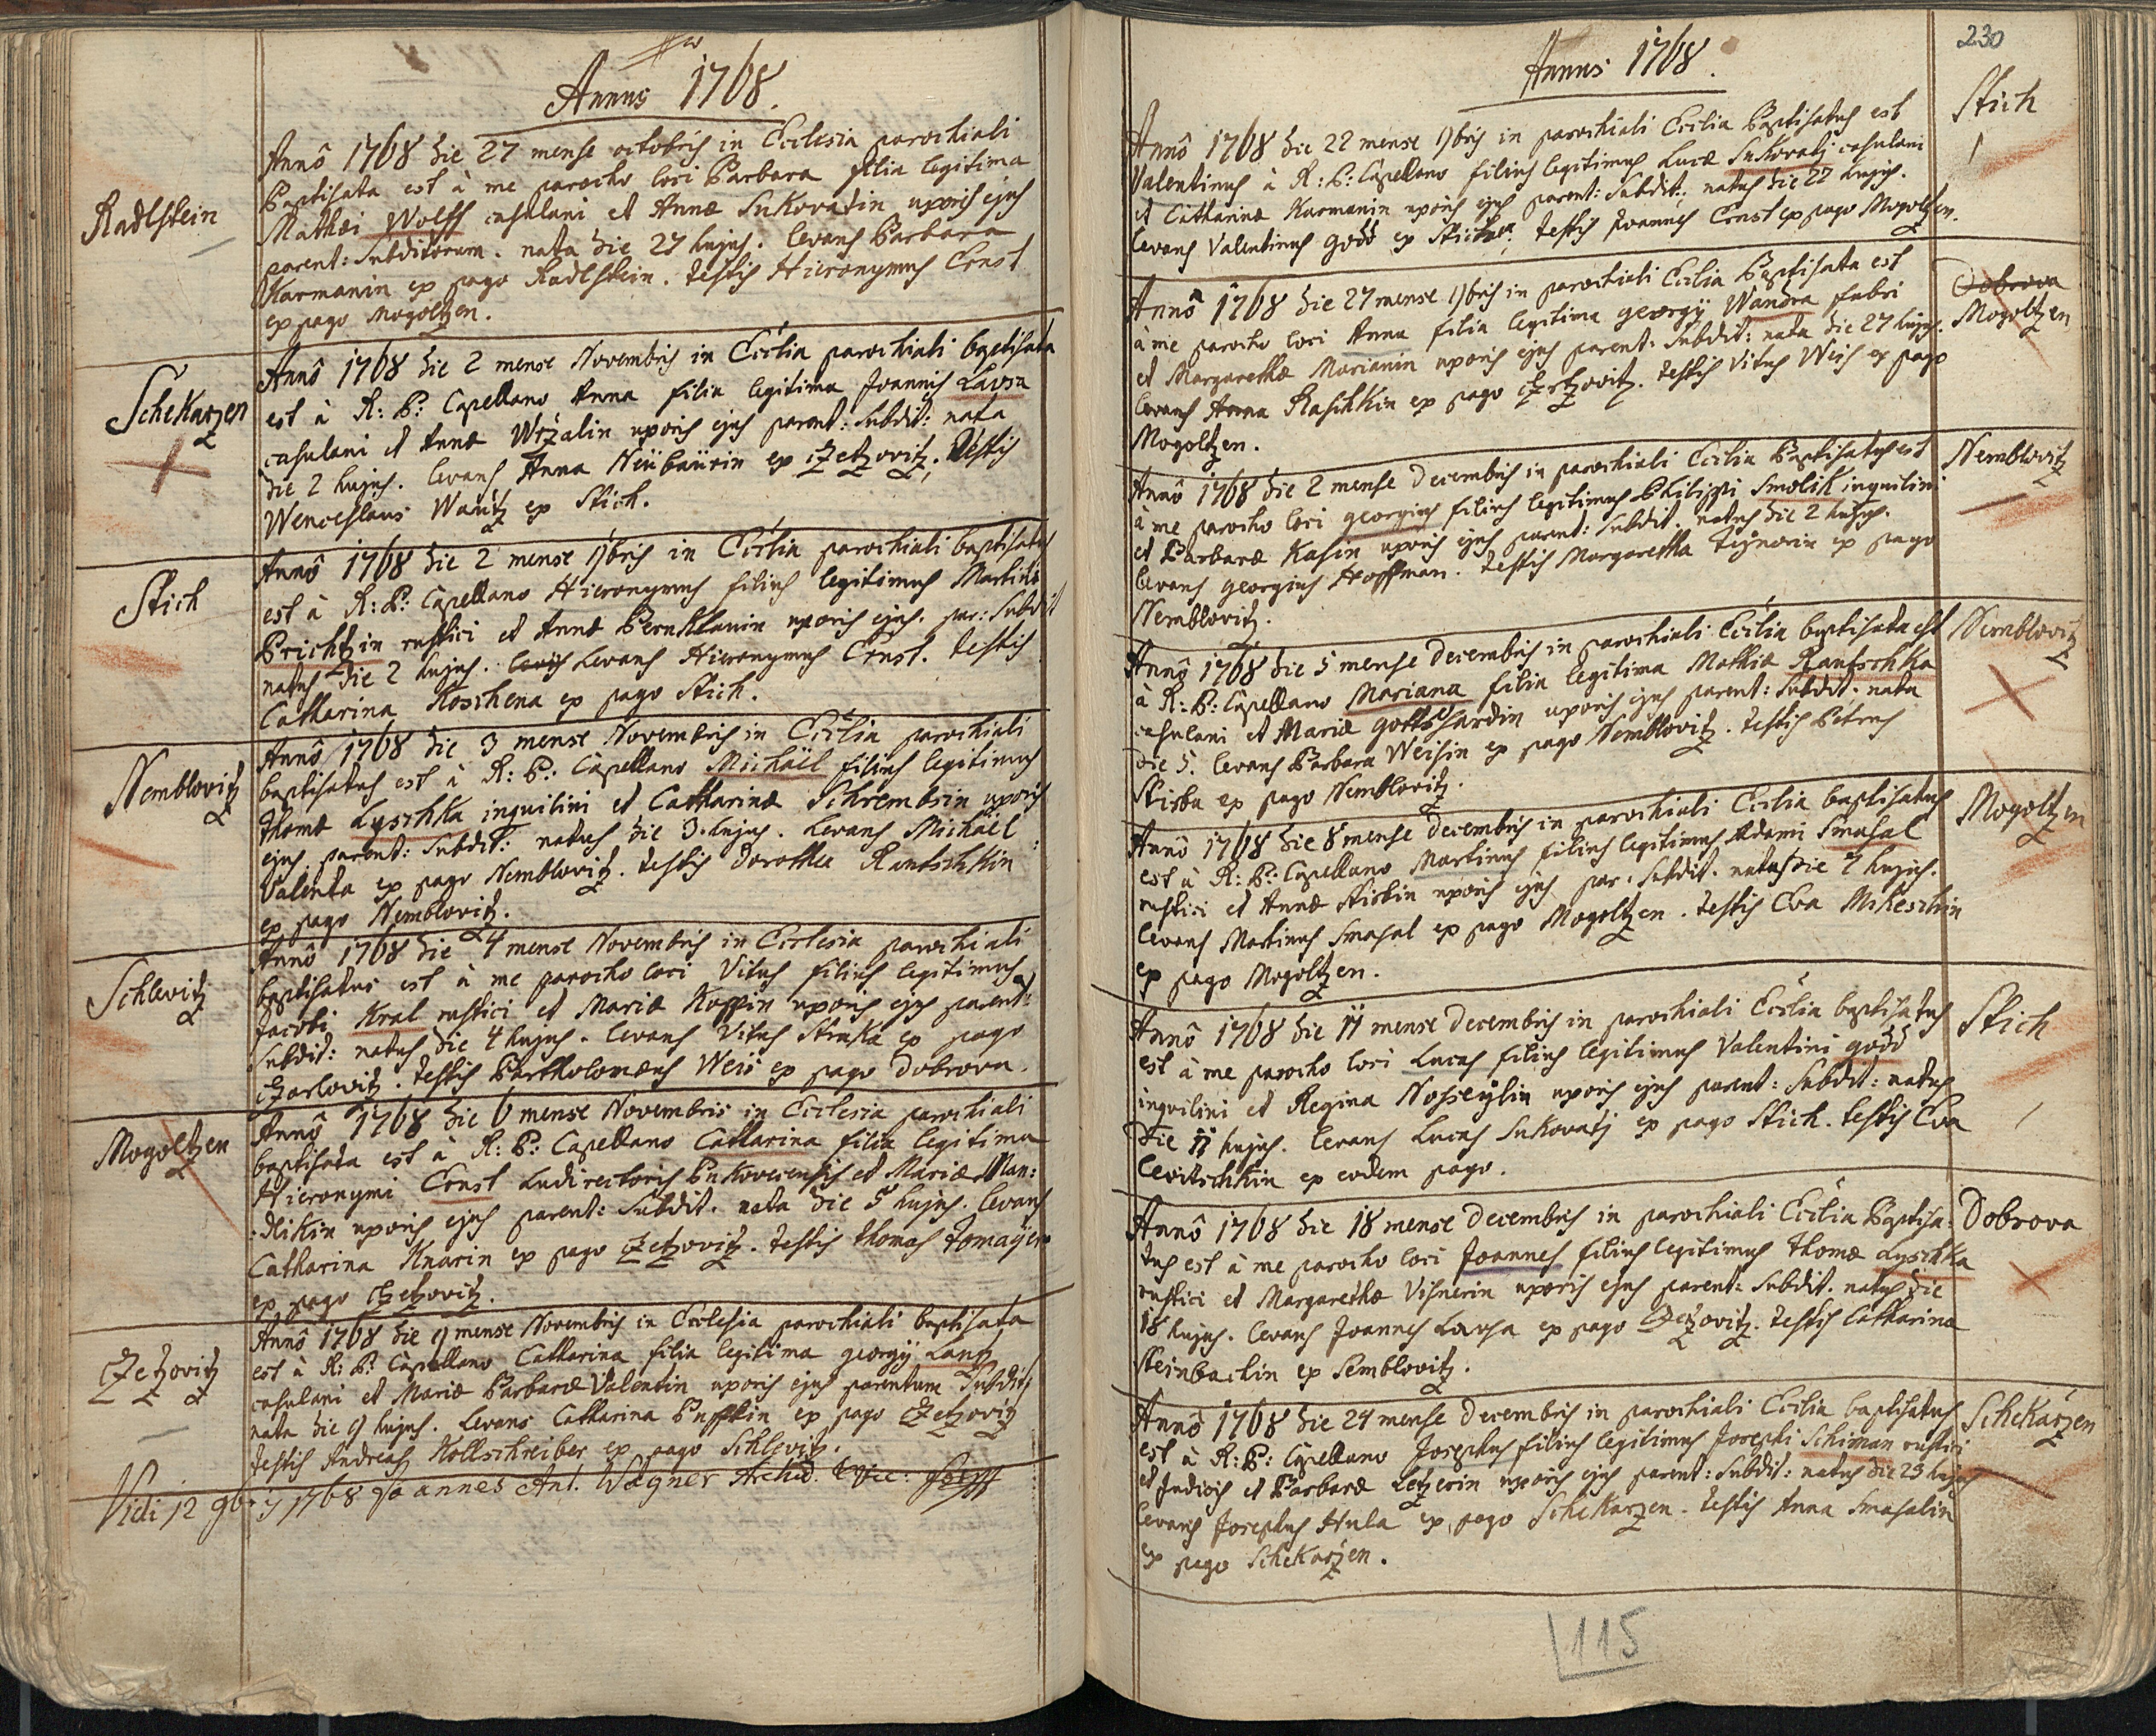 Annus 1768.
Radlstein
Annô 1768 die 27 mense octobris in Ecclesia parochiali
Baptisata est à me parocho loci Barbara filia legitima
Mathæi Wolff casulani et Annæ Sukovatin uxoris ejus
parent: Subditorum. nata die 27 hujus. levans Barbara
Karmanin ex pago Radlstein. testis Hieronymus Ernst
ex pago Mogoltzen.
ScheKarzen
Annô 1768 die 2 mense Novembris in Ecclia parochiali baptisata
est à R: P: Capellano Anna filia legitima Joannis Lavsa
casulani et Annæ Wržalin uxoris ejus parent: Subdit: nata
die 2 hujus. levans Anna Neübaürin ex CZetzovitz. Testis
Wenceslaus Wanitz ex Stich.
Stich
Annô 1768 die 2 mense 9bris in Ecclia parochiali baptisatus
est à R: P: Capellano Hieronymus filius legitimus Martini
Brichtzin rustici et Annæ Bernklauin uxoris ejus. par: Subdit
natus die 2 hujus. Levans Hieronymus Ernst. testis
Catharina Koschena ex pago Stich.
Nemblovitz
Annô 1768 die 3 mense Novembris in Ecclia parochiali
baptisatus est à R: P: Capellano Michäel filius legitimus
thomæ LyschKa inquilini et Catharinæ Schrembsin uxoris
ejus. parent: Subdit: natus die 3. hujus. Levans Michäel
Valenta ex pago Nemblovitz. testis Dorothea Rantschkin
ex pago Nemblovitz.
Schlevitz
Annô 1768 die 4 mense Novembris in Ecclesia parochiali
baptisatus est à me parocho loci Vitus filius legitimus
Jacobi Kral rustici et Mariæ Koppin uxoris ejus parent:
Subdit: natus die 4 hujus. levans Vitus StruKa ex pago
CZarlovitz. testis Bartholomæus Weis ex pago Dobrova.
Mogoltzen
Annô 1768 die 6 mense Novembris in Ecclesia parochiali
baptisata est à R: P: Capellano Catharina filia legitima
Hieronymi Ernst Ludirectoris Pukovecensis et Mariæ Man:
:dlikin uxoris ejus parent: Subdit. nata die 5 hujus. levans
Catharina Knarin ex pago CZetzovitz. testis thomas tomayer
ex pago CZetzovitz.
CZetzovitz
Annô 1768 die 9 mense Novembris in Ecclesia parochiali baptisata
est à R: P: Capellano Catharina filia legitima georgÿ Lang
casulani et Mariæ Barbaræ Valentin uxoris ejus parentum Subdit:
nata die 9 hujus. Levans Catharina Puffkin ex pago CZetzovitz
testis Andreas Kollschreiber ex pago Schlevitz.
Vidi 12 9bris 1768 Joannes Ant. Wagner Archid.
230
Annus 1768.
Stich
Annô 1768 die 22 mense 9bris in parochiali Ecclia Baptisatus est
Valentinus à R: P: Capellano filius legitimus Lucæ Sukovatj casulani
et Catharinæ Karmanin uxoris ejus parent: Subdit: natus die 22 hujus.
levans Valentinus godd ex Stich. testis Joannes Ernst ex pago Mogoltzen.
Dobrova
Mogoltzen
Annô 1768 die 27 mense 9bris in parochiali Ecclia Baptisata est
à me parocho loci Anna filia legitima georgÿ Wandra fabri
et Margarethæ Marianin uxoris ejus parent: Subdit: nata die 27 hujus.
levans Anna Raschkin ex pago CZetzovitz. testis Vitus Weis ex pago
Mogoltzen.
Nemblovitz
Annô 1768 die 2 mense Decembris in parochiali Ecclia Baptisatus est
à me parocho loci georgius filius legitimus Philippi Smolik inquilini
et Barbaræ Kasin uxoris ejus parent: Subdit. natus die 2 hujus.
levans georgius Hoffman. testis Margaretha Tignerin ex pago
Nemblovitz.
Nemblovitz
Annô 1768 die 5 mense Decembris in parochiali Ecclia baptisata est
à R: P: Capellano Mariana filia legitima Mathiæ RantschKa
casulani et Mariæ gottshardin uxoris ejus parent: Subdit. nata
die 5. levans Barbara Weisin ex pago Nemblovitz. testis Petrus
Skisba ex pago Nemblovitz.
Mogoltzen
Annô 1768 die 8 mense Decembris in parochiali Ecclia baptisatus
est à R: P: Capellano Martinus filius legitimus Adami Smahal
rustici et Annæ Skisbin uxoris ejus par. Subdit. natus die 7 hujus.
levans Martinus Smahal ex pago Mogoltzen. testis Eva MiKeschin
ex pago Mogoltzen.
Stich
Annô 1768 die 11 mense Decembris in parochiali Ecclia baptisatus
est à me parocho loci Lucas filius legitimus Valentini godd
inquilini et Regina Nohseÿlin uxoris ejus parent: Subdit: natus
die 11 hujus. levans Lucas Sukovatj ex pago Stich. testis Eva
levitschkin ex eodem pago.
Dobrova
Annô 1768 die 18 mense Decembris in parochiali Ecclia Baptisa:
tus est à me parocho loci Joannes filius legitimus thomæ Lyschka
rustici et Margarethæ Visnerin uxoris ejus parent: Subdit. natus die
18 hujus. levans Joannes Lavsa ex pago CZetzovitz. testis Catharina
Steinbachin ex Semblovitz.
ScheKarzen
Annô 1768 die 24 mense Decembris in parochiali Ecclia baptisatus
est à R: P: Capellano Josephus filius legitimus Josephi Schiman rustici
et Judicis et Barbaræ Letzerin uxoris ejus parent: Subdit: natus die 23 hujus
levans Josephus Hula ex pago SchekarZen. testis Anna Smahalin
ex pago SchekarZen.
115